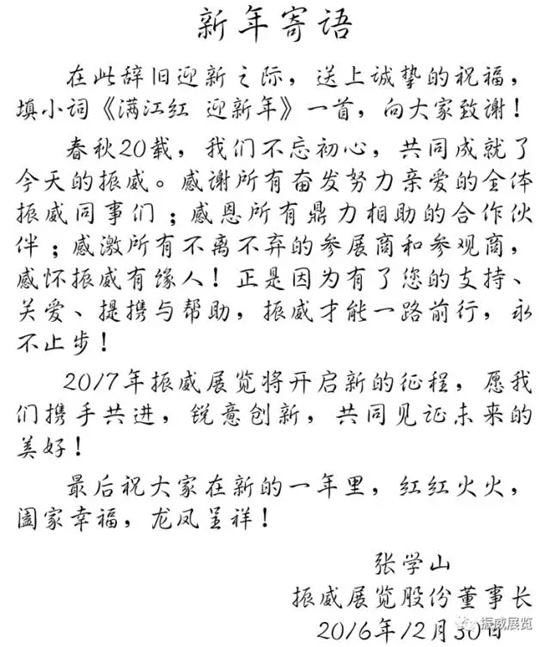 新年寄语
在此辞旧迎新之际，送上诚挚的祝福，
填小词《满江红 迎新年》一首，向大家致谢！
春秋20载，我们不忘初心，共同成就了
今天的振威。感谢所有奋发努力亲爱的全体
振威同事们；感恩所有鼎力相助的合作伙
伴；感激所有不离不弃的参展商和参观商，
感怀振威有缘人！正是因为有了您的支持、
关爱、提携与帮助，振威才能一路前行，永
不止步！
2017年振威展览将开启新的征程，愿我
们携手共进，锐意创新，共同见证未来的
美好！
最后祝大家在新的一年里，红红火火，
阖家幸福，龙凤呈祥！
张学山
振威展览股份董事长
2016年12月30日
振威展览